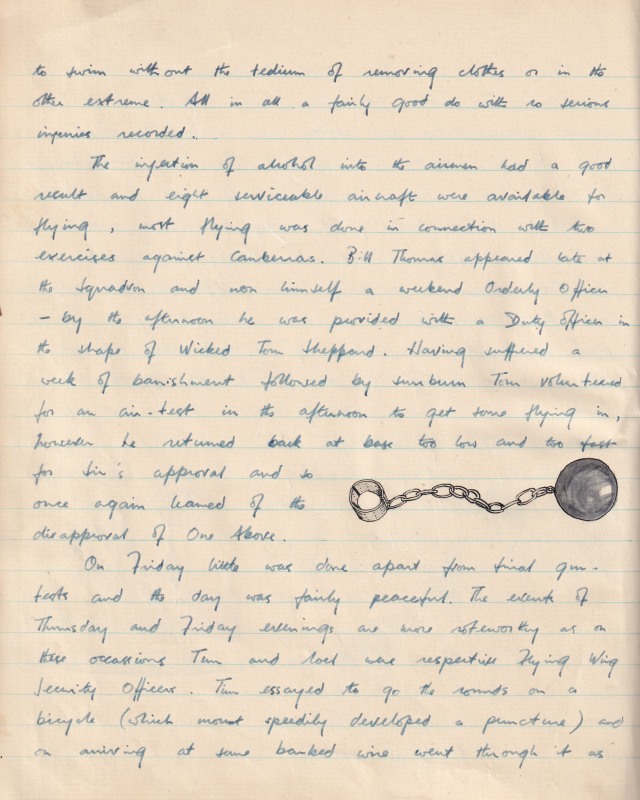 to swim without the tedium of removing clothes or in the
other extreme. All in all a fairly good do with no serious
injuries recorded.
The injection of alcohol into the airmen had a good
result and eight serviceable aircraft were available for
flying, most flying was done in connection with two
exercises against Canberras. Bill Thomas appeared late at
the Squadron and won himself a weekend Orderly Officer
- by the afternoon he was provided with a Duty officer in
the shape of Wicked Tom Sheppard. Having suffered a
week of banishment followed by sunburn Tom volunteered
for an air-test in the afternoon to get some flying in,
however he returned back at base too low and too fast
for Sir's approval and so
once again learned of the
disapproval of One Above.
On Friday little was done apart from final gun-
tests and the day was fairly peaceful. The events of
Thursday and Friday evenings are more noteworthy as on
these occassions Tim and Noel were respective Flying Wing
Security Officers. Tim essayed to go the rounds on a
bicycle (which mount speedily developed a puncture) and
on arriving at some barbed wire went through it as